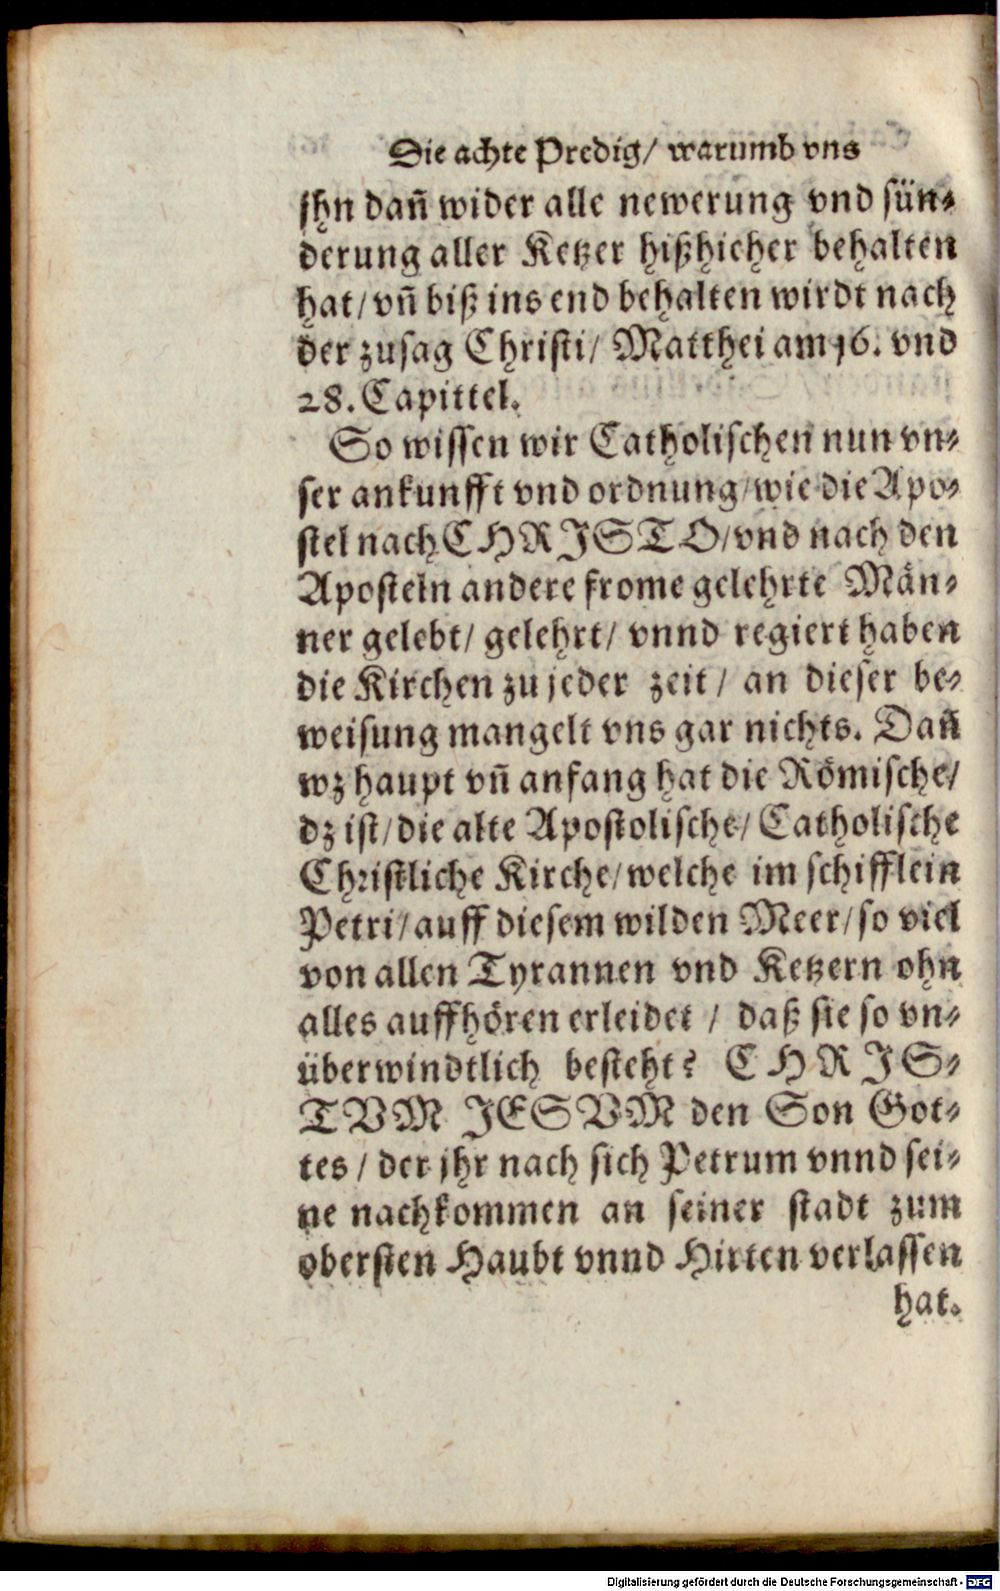 Die achte Predig/ warumb vns
jhn dañ wider alle newerung vnd sün⸗
derung aller Ketzer hißhieher behalten
hat/ vñ biß ins end behalten wirdt nach
der zusag Christi/ Matthei am 16. vnd
28. Capittel.
So wissen wir Catholischen nun vn⸗
ser ankunfft vnd ordnung/ wie die Apo⸗
stel nach CHRISTO/ vnd nach den
Aposteln andere frome gelehrte Män⸗
ner gelebt/ gelehrt/ vnnd regiert haben
die Kirchen zu jeder zeit/ an dieser be⸗
weisung mangelt vns gar nichts. Dañ
wz haupt vñ anfang hat die Römische/
dz ist/ die alte Apostolische/ Catholische
Christliche Kirche/ welche im schifflein
Petri/ auff diesem wilden Meer/ so viel
von allen Tyrannen vnd Ketzern ohn
alles auffhören erleidet/ daß sie so vn⸗
überwindtlich besteht? CHRIS⸗
TVM JESVM den Son Got⸗
tes/ der jhr nach sich Petrum vnnd sei⸗
ne nachkommen an seiner stadt zum
obersten Haubt vnnd Hirten verlassen
hat.
Digitalisierung gefördert durch die Deutsche Forschungsgemeinschaft - DFG